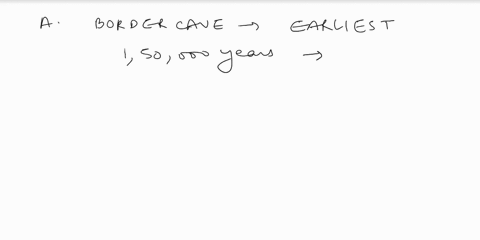 A. BORDER CAVE → EARLIEST
1,50,000 years →